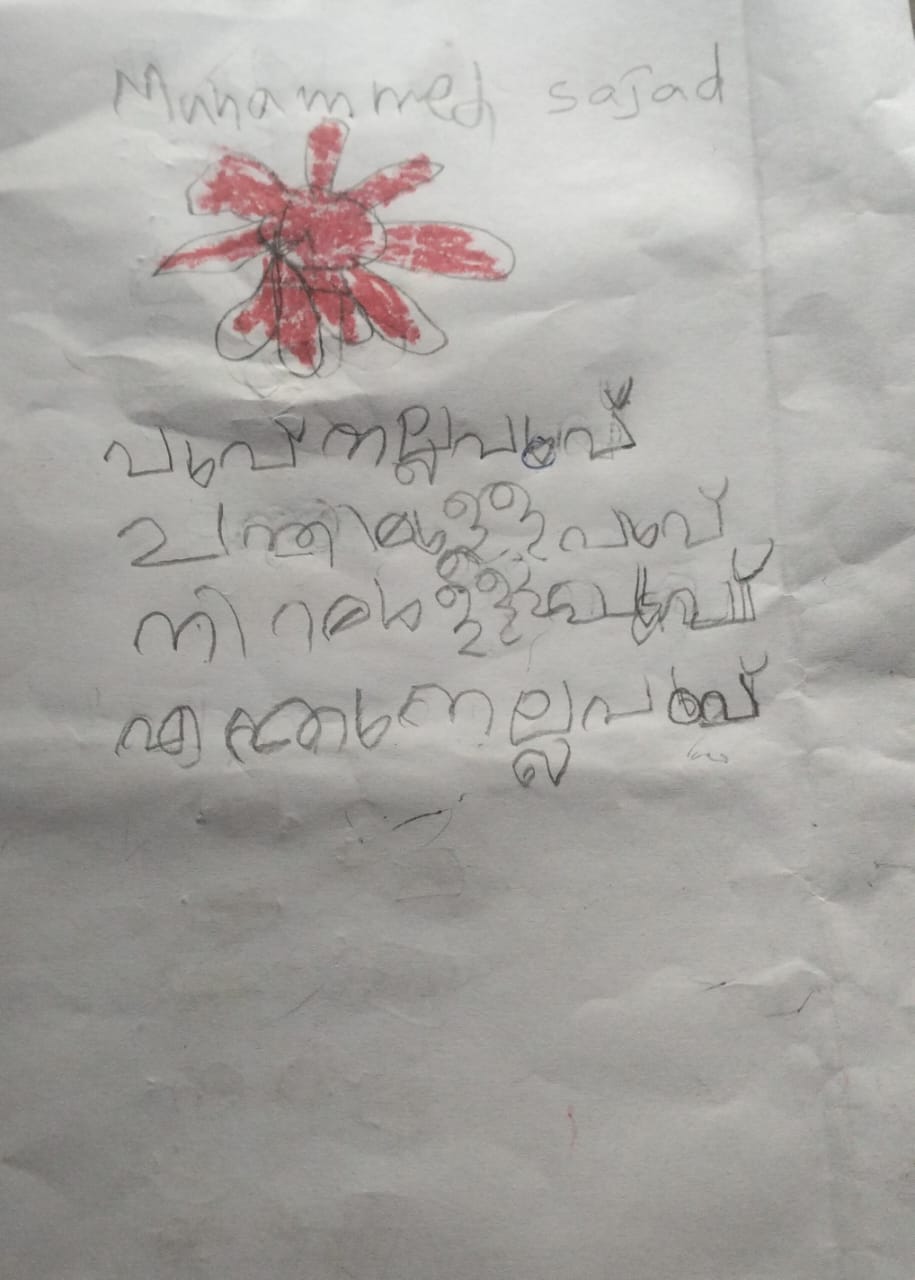 Muhammed sajad
പൂവ് നല്ല പൂവ്
ചന്തമുള്ള പൂവ്
നിറമുള്ള പൂവ്
എന്തു നല്ല പൂവ്